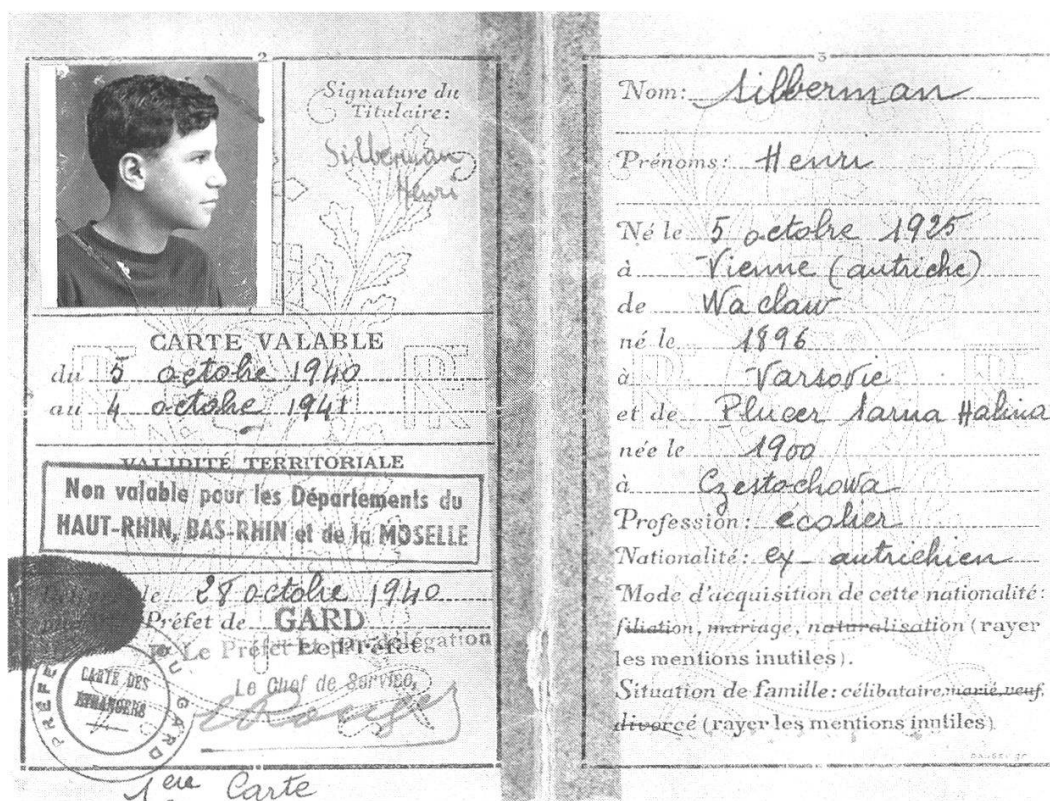 2
Signature du
Titulaire:
Silberman
Henri
CARTE VALABLE
du 5 octobre 1940
au 4 octobre 1941
VALIDITÉ TERRITORIALE
Non valable pour les Départements du
HAUT-RHIN, BAS-RHIN et de la MOSELLE
le 28 octobre 1940
Préfet de GARD
Le Préfet et par délégation
Le Préfet
Le Chef de Service,
CARTE DES
ÉTRANGERS
DU GARD
1ère Carte
3
Nom: Silberman
Prénoms: Henri
Né le 5 octobre 1925
à Vienne (autriche)
de Waclaw
né le 1896
à Varsovie
et de Plucer Sarna Halina
née le 1900
à Czestochowa
Profession: écolier
Nationalité: ex-autrichien
Mode d'acquisition de cette nationalité:
filiation, mariage, naturalisation (rayer
les mentions inutiles).
Situation de famille: célibataire, marié, veuf,
divorcé (rayer les mentions inutiles)